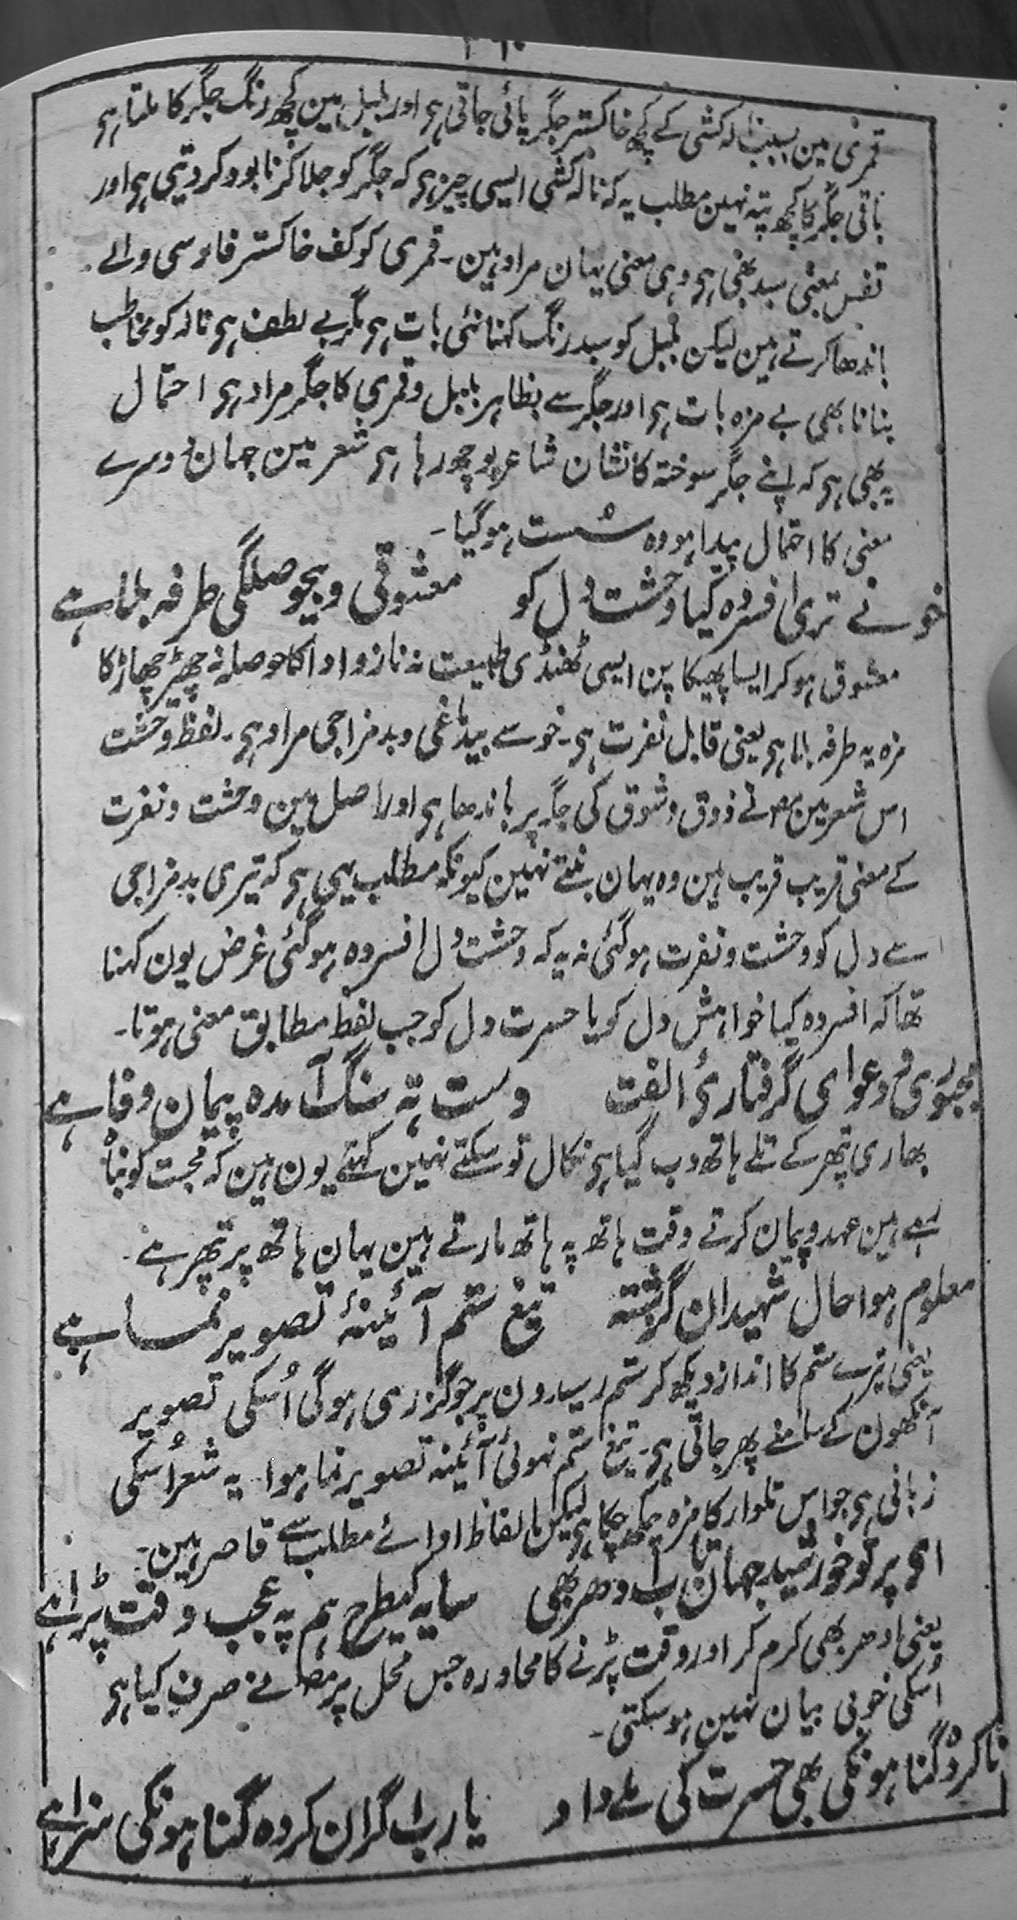 قمری مین بسبب نالہ کشی کے کچھ خاکستر جگر پائی جاتی ہی اور بلبل مین کچھ رنگ جگر کا ملتا ہی
باقی جگر کا کچھ پتہ نہین مطلب یہ کہ نالہ کشی ایسی چیز ہی کہ جگر کو جلا کر نابود کر دیتی ہی اور
قفس بمعنی سبد بھی ہی وہی معنی یہان مراد ہین۔ قمری کو کف خاکستر فارسی والے
باندھا کرتے ہین لیکن بلبل کو سبد رنگ کہنا نئی بات ہی مگر بے لطف ہی نالہ کو مخاطب
بنانا بھی بے مزہ بات ہی اور جگر سے بظاہر بلبل و قمری کا جگر مراد ہی احتمال
یہ بھی ہی کہ اپنے جگر سوختہ کا نشان شاعر پوچھ رہا ہی شعر مین جہان دوسرے
معنی کا احتمال پیدا ہو وہ سست ہو گیا۔
خو نے تری افسردہ کیا وحشت دل کو معشوقی و بیحوصلگی طرفہ بلا ہے
معشوق ہو کر ایسا پھیکا پن ایسی ٹھنڈی طبیعت نہ ناز و ادا کا حوصلہ نہ چھیڑ چھاڑ کا
مزہ یہ طرفہ بلا ہی یعنی قابل نفرت ہی۔ خو سے بیدماغی و بد مزاجی مراد ہی۔ لفظ وحشت
اس شعر مین مصہ نے ذوق و شوق کی جگہ پر باندھا ہی اور اصل مین وحشت و نفرت
کے معنی قریب قریب ہین وہ یہان بنتے نہین کیونکہ مطلب یہی ہی کہ تیری بد مزاجی
سے دل کو وحشت و نفرت ہو گئی نہ یہ کہ وحشت دل افسردہ ہو گئی غرض یون کہنا
تھا کہ افسردہ کیا خواہش دل کو یا حسرت دل کو جب لفظ مطابق معنی ہوتا۔
مجبوری و دعوای گرفتاریٔ الفت دست تہ سنگ آمدہ پیمان وفا ہے
بھاری پتھر کے تلے ہاتھ دب گیا ہی نکال تو سکتے نہین کہتے یون ہین کہ محبت کو نباہ
رہے ہین عہد و پیمان کرتے وقت ہاتھ پہ ہاتھ مارتے ہین یہان ہاتھ پر پتھر ہے۔
معلوم ہوا حال شہیدان گزشتہ تیغ ستم آئینۂ تصویر نما ہے
یعنی تیرے ستم کا انداز دیکھ کر ستم رسیدون پر جو گزری ہوگی اُسکی تصویر
آنکھون کے سامنے پھر جاتی ہی۔ تیغ ستم نہوئی آئینہ تصویر نما ہوا یہ شعر اُسکی
زبانی ہی جو اس تلوار کا مزہ چکھ چکا ہی لیکن الفاظ ادائے مطلب سے قاصر ہین۔
ای پرتو خورشید جہان تاب ادھر بھی سایہ کیطرح ہم پہ عجب وقت پڑا ہے
یعنی ادھر بھی کرم کر اور وقت پڑنے کا محاورہ جس محل پر مصہ نے صرف کیا ہی
اُسکی خوبی بیان نہین ہو سکتی۔
ناکردہ گناہونکی بھی حسرت کی ملے داد یارب اگر ان کردہ گناہونکی سزا ہے